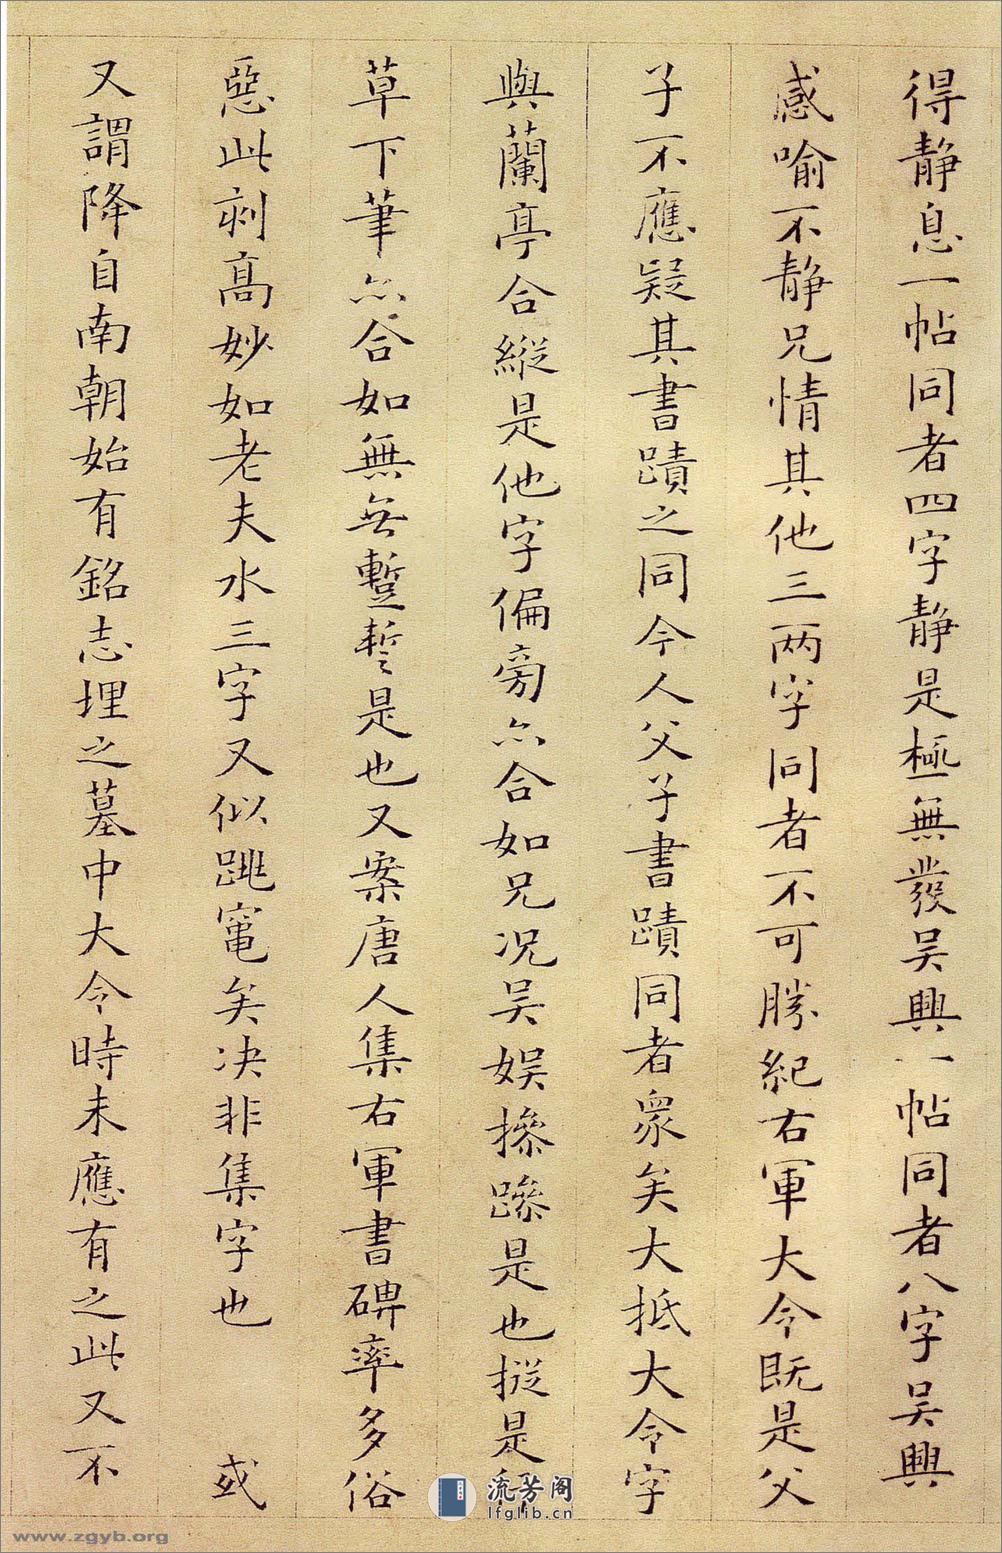 得静息一帖同者四字静是極無發吴興一帖同者八字吴興
感喻不静兄情其他三两字同者不可勝紀右軍大令既是父
子不應疑其書蹟之同今人父子書蹟同者衆矣大抵大令字
與蘭亭合縱是他字偏旁亦合如兄况吴娱摻蹤是也摐是
草下筆亦合如無無蹔誓是也又案唐人集右軍書碑率多俗
惡此刻高妙如老夫水三字又似跳竃矣决非集字也 或
又謂降自南朝始有銘志埋之墓中大令時未應有之此又不
流芳阁
lfglib.cn
www.zgyb.org